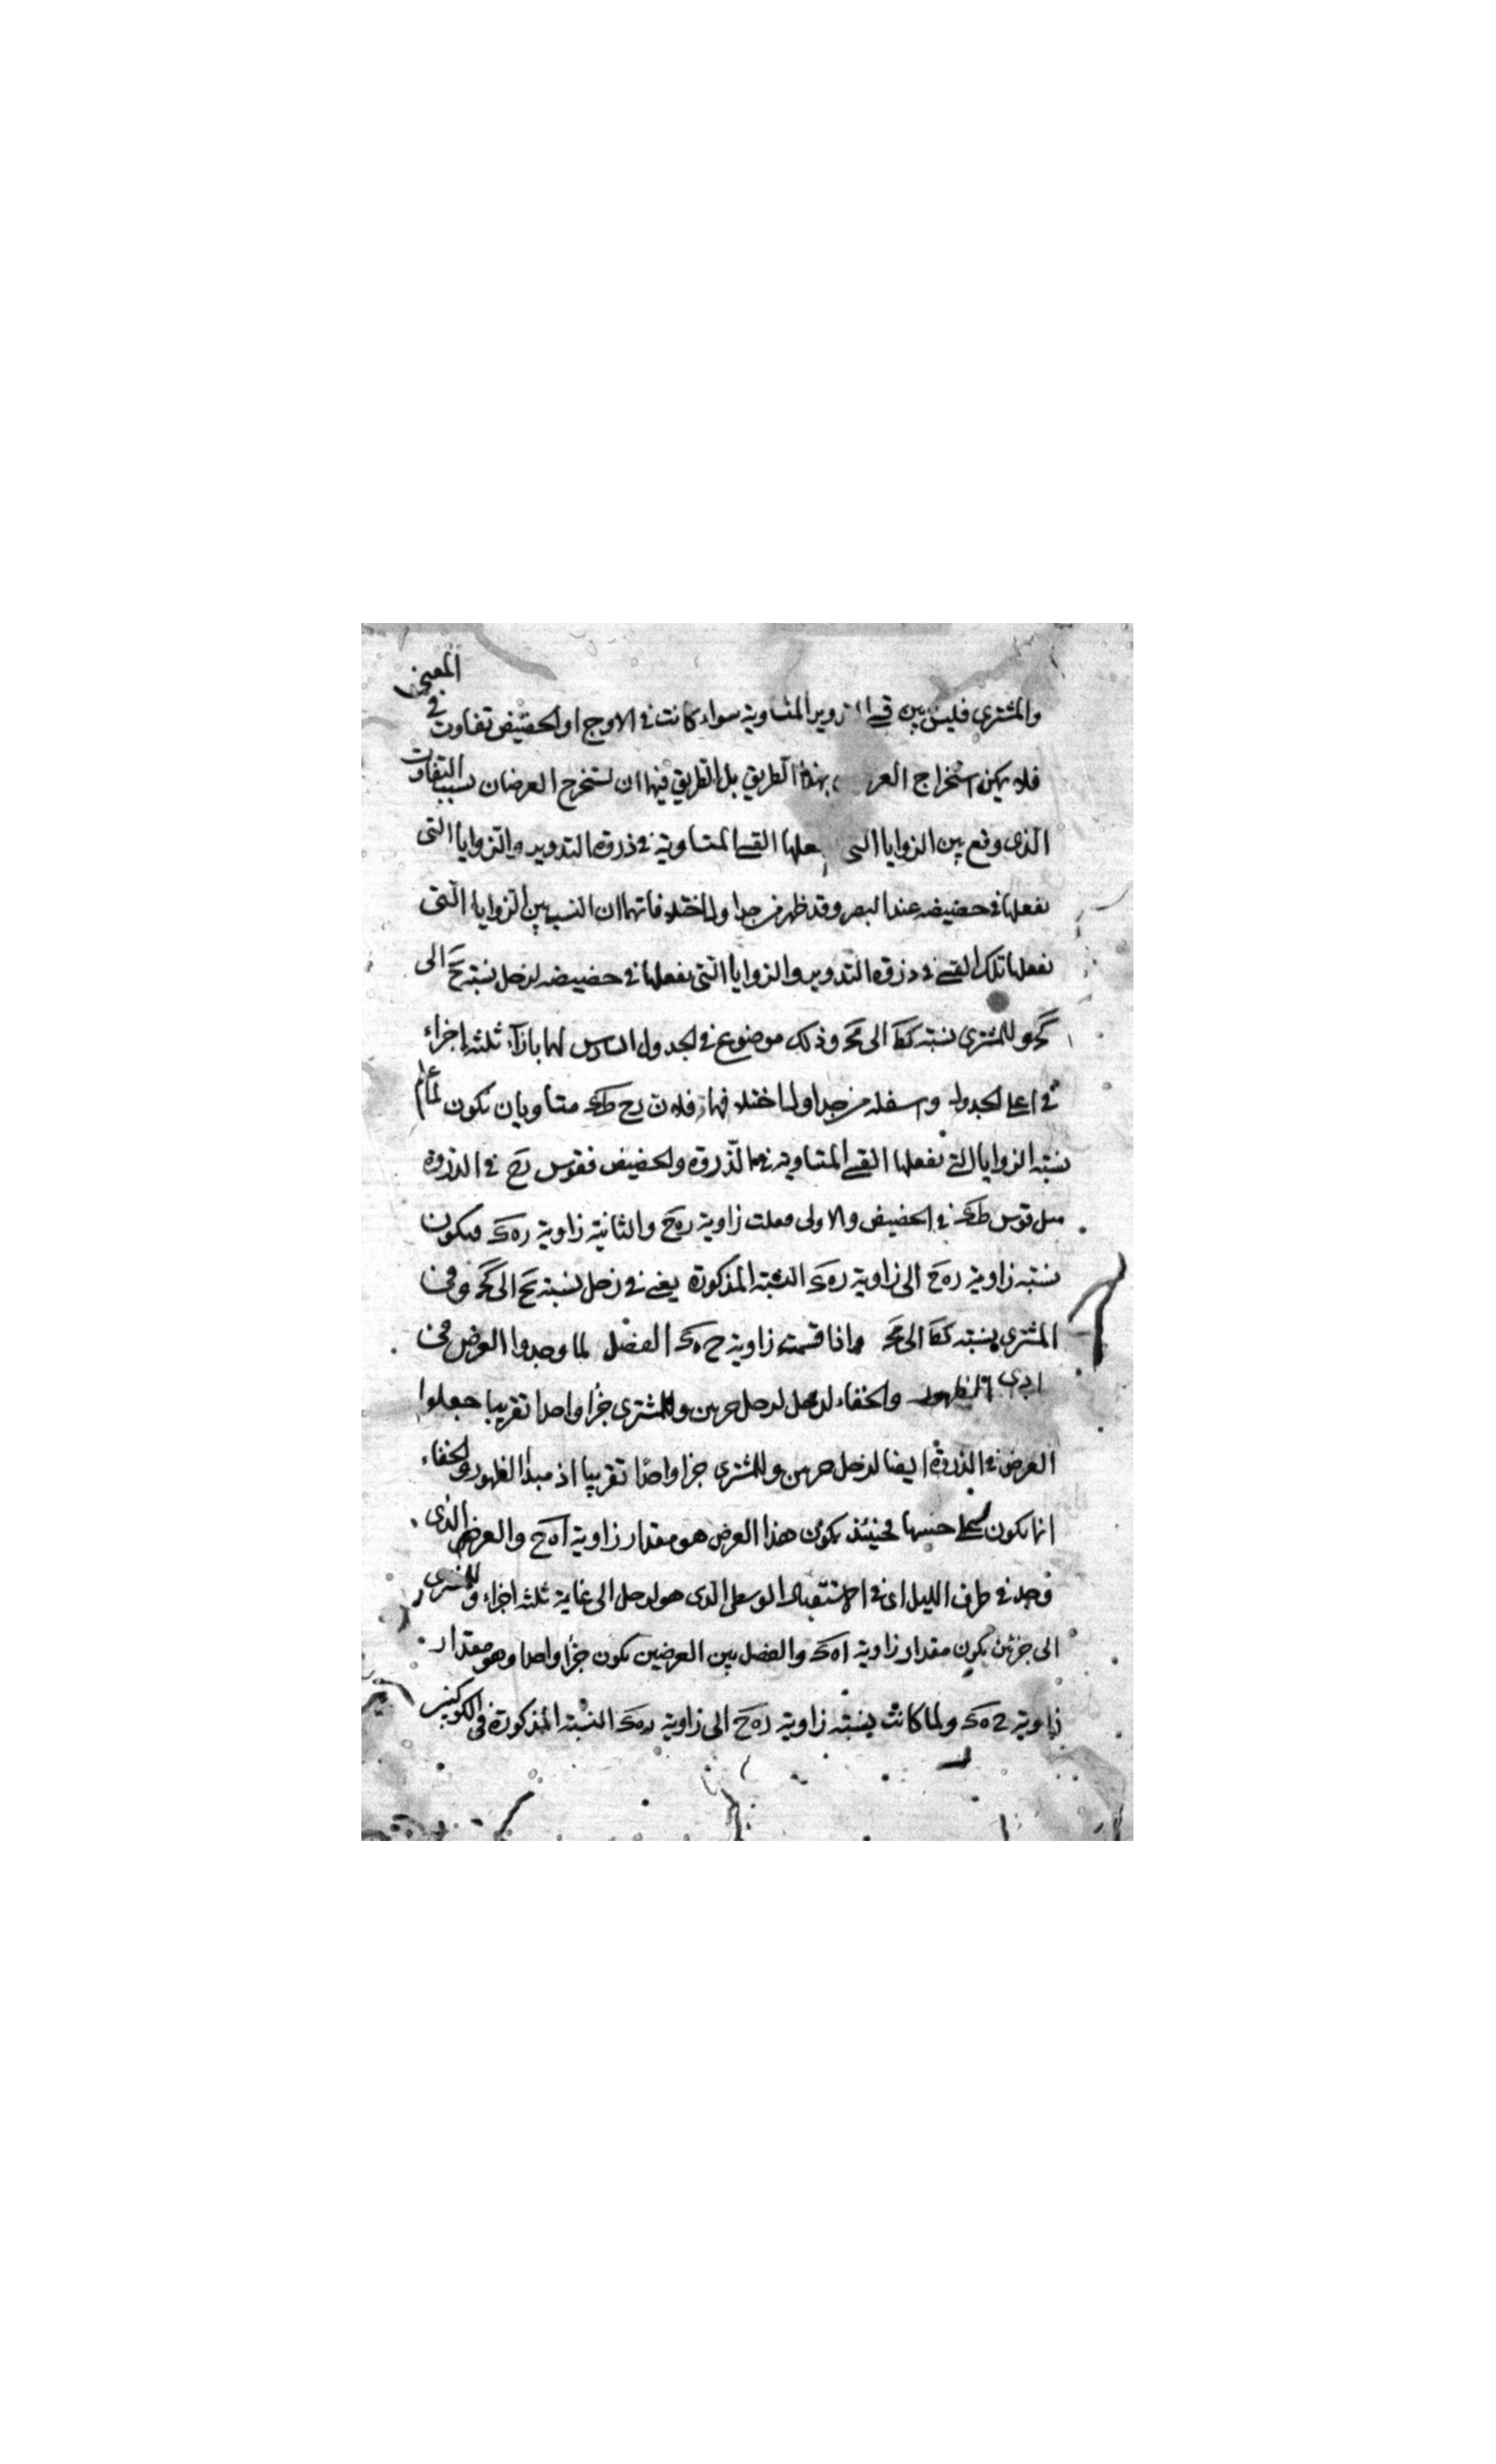 والمشترى فليس بين قسى التدوير المتساوية سواء كانت فى الاوج او الحضيض تفاوت فى المعنى
فلا يمكن استخراج بهذا الطريق بل الطريق فيهما ان نستخرج العرضان بسبب التفاوت
الذى وقع بين الزوايا التى القسى المتساوية فى ذروة التدوير والزوايا التى
نفعلها فى حضيضه عند البصر وقد ظهر من جداول اختلافاتهما ان النسب بين الزوايا التى
نفعلها تلك القسى فى ذروة التدوير والزوايا التى نفعلها فى حضيضه لزحل نسبة الى
وللمشترى نسبة كط الى مح وذلك موضوع فى الجدول السادس لهما بازاء ثلثه اجزاء
فى اعلى الجدول واسفله من جداول اختلافهما فلان رح طك متساويان تكون
نسبة الزوايا التى نفعلها القسى المتساوية فى الذروة والحضيض فقوس رح فى الذروة
مثل قوس طك فى الحضيض والاولى فعلت زاوية ره ح والثانية زاوية ره ك فيكون
نسبة زاوية ره ح الى زاوية ره ك النسبة المذكورة يعنى فى زحل نسبة الى وفى
المشترى نسبة كط الى مح واذا قسمت زاوية ح ه ك الفضل لما وجدوا العرض فى
الظهور والخفاء لزحل جزءين وللمشترى جزأ واحدا تقريبا جعلوا
العرض فى الذروة ايضا لزحل جزءين وللمشترى جزا واحدا تقريبا اذ مبدأ الظهور والخفاء
انما يكون فحينئذ يكون هذا العرض هو مقدار زاوية ا ه ح والعرض الذى
وجد فى طرف الليل اى فى الاستقبال الوسطى الذى هو لزحل الى غاية ثلثه اجزاء وللمشترى
الى جزئين يكون مقدار زاوية ا ه ك والفضل بين العرضين يكون جزأ واحدا وهو مقدار
زاوية ح ه ك ولما كانت نسبة زاوية ره ح الى زاوية ره ك النسبة المذكورة فى الكوكبين